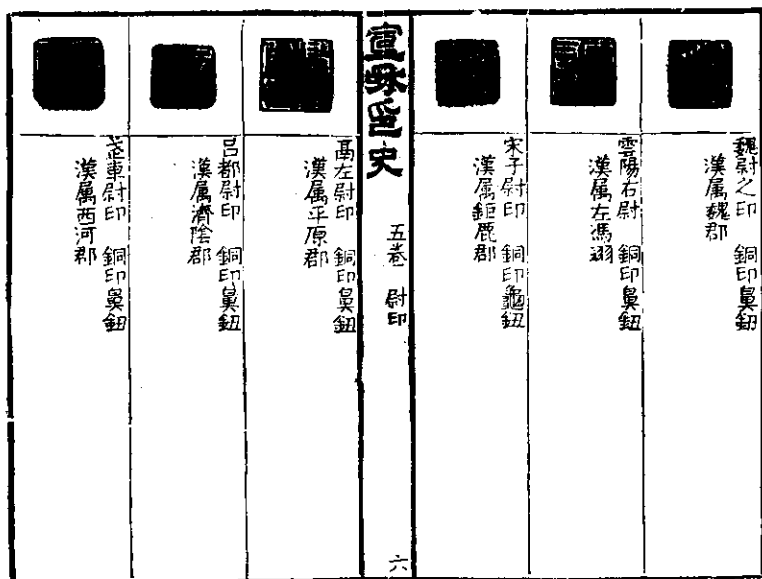 魏尉之印 銅印鼻鈕
漢属魏郡
雲陽右尉 銅印鼻鈕
漢属左馮翊
宋子尉印 銅印龜鈕
漢属鉅鹿郡
宣和印史 五卷 尉印 六
高左尉印 銅印鼻鈕
漢属平原郡
呂都尉印 銅印鼻鈕
漢属濟陰郡
武車尉印 銅印鼻鈕
漢属西河郡